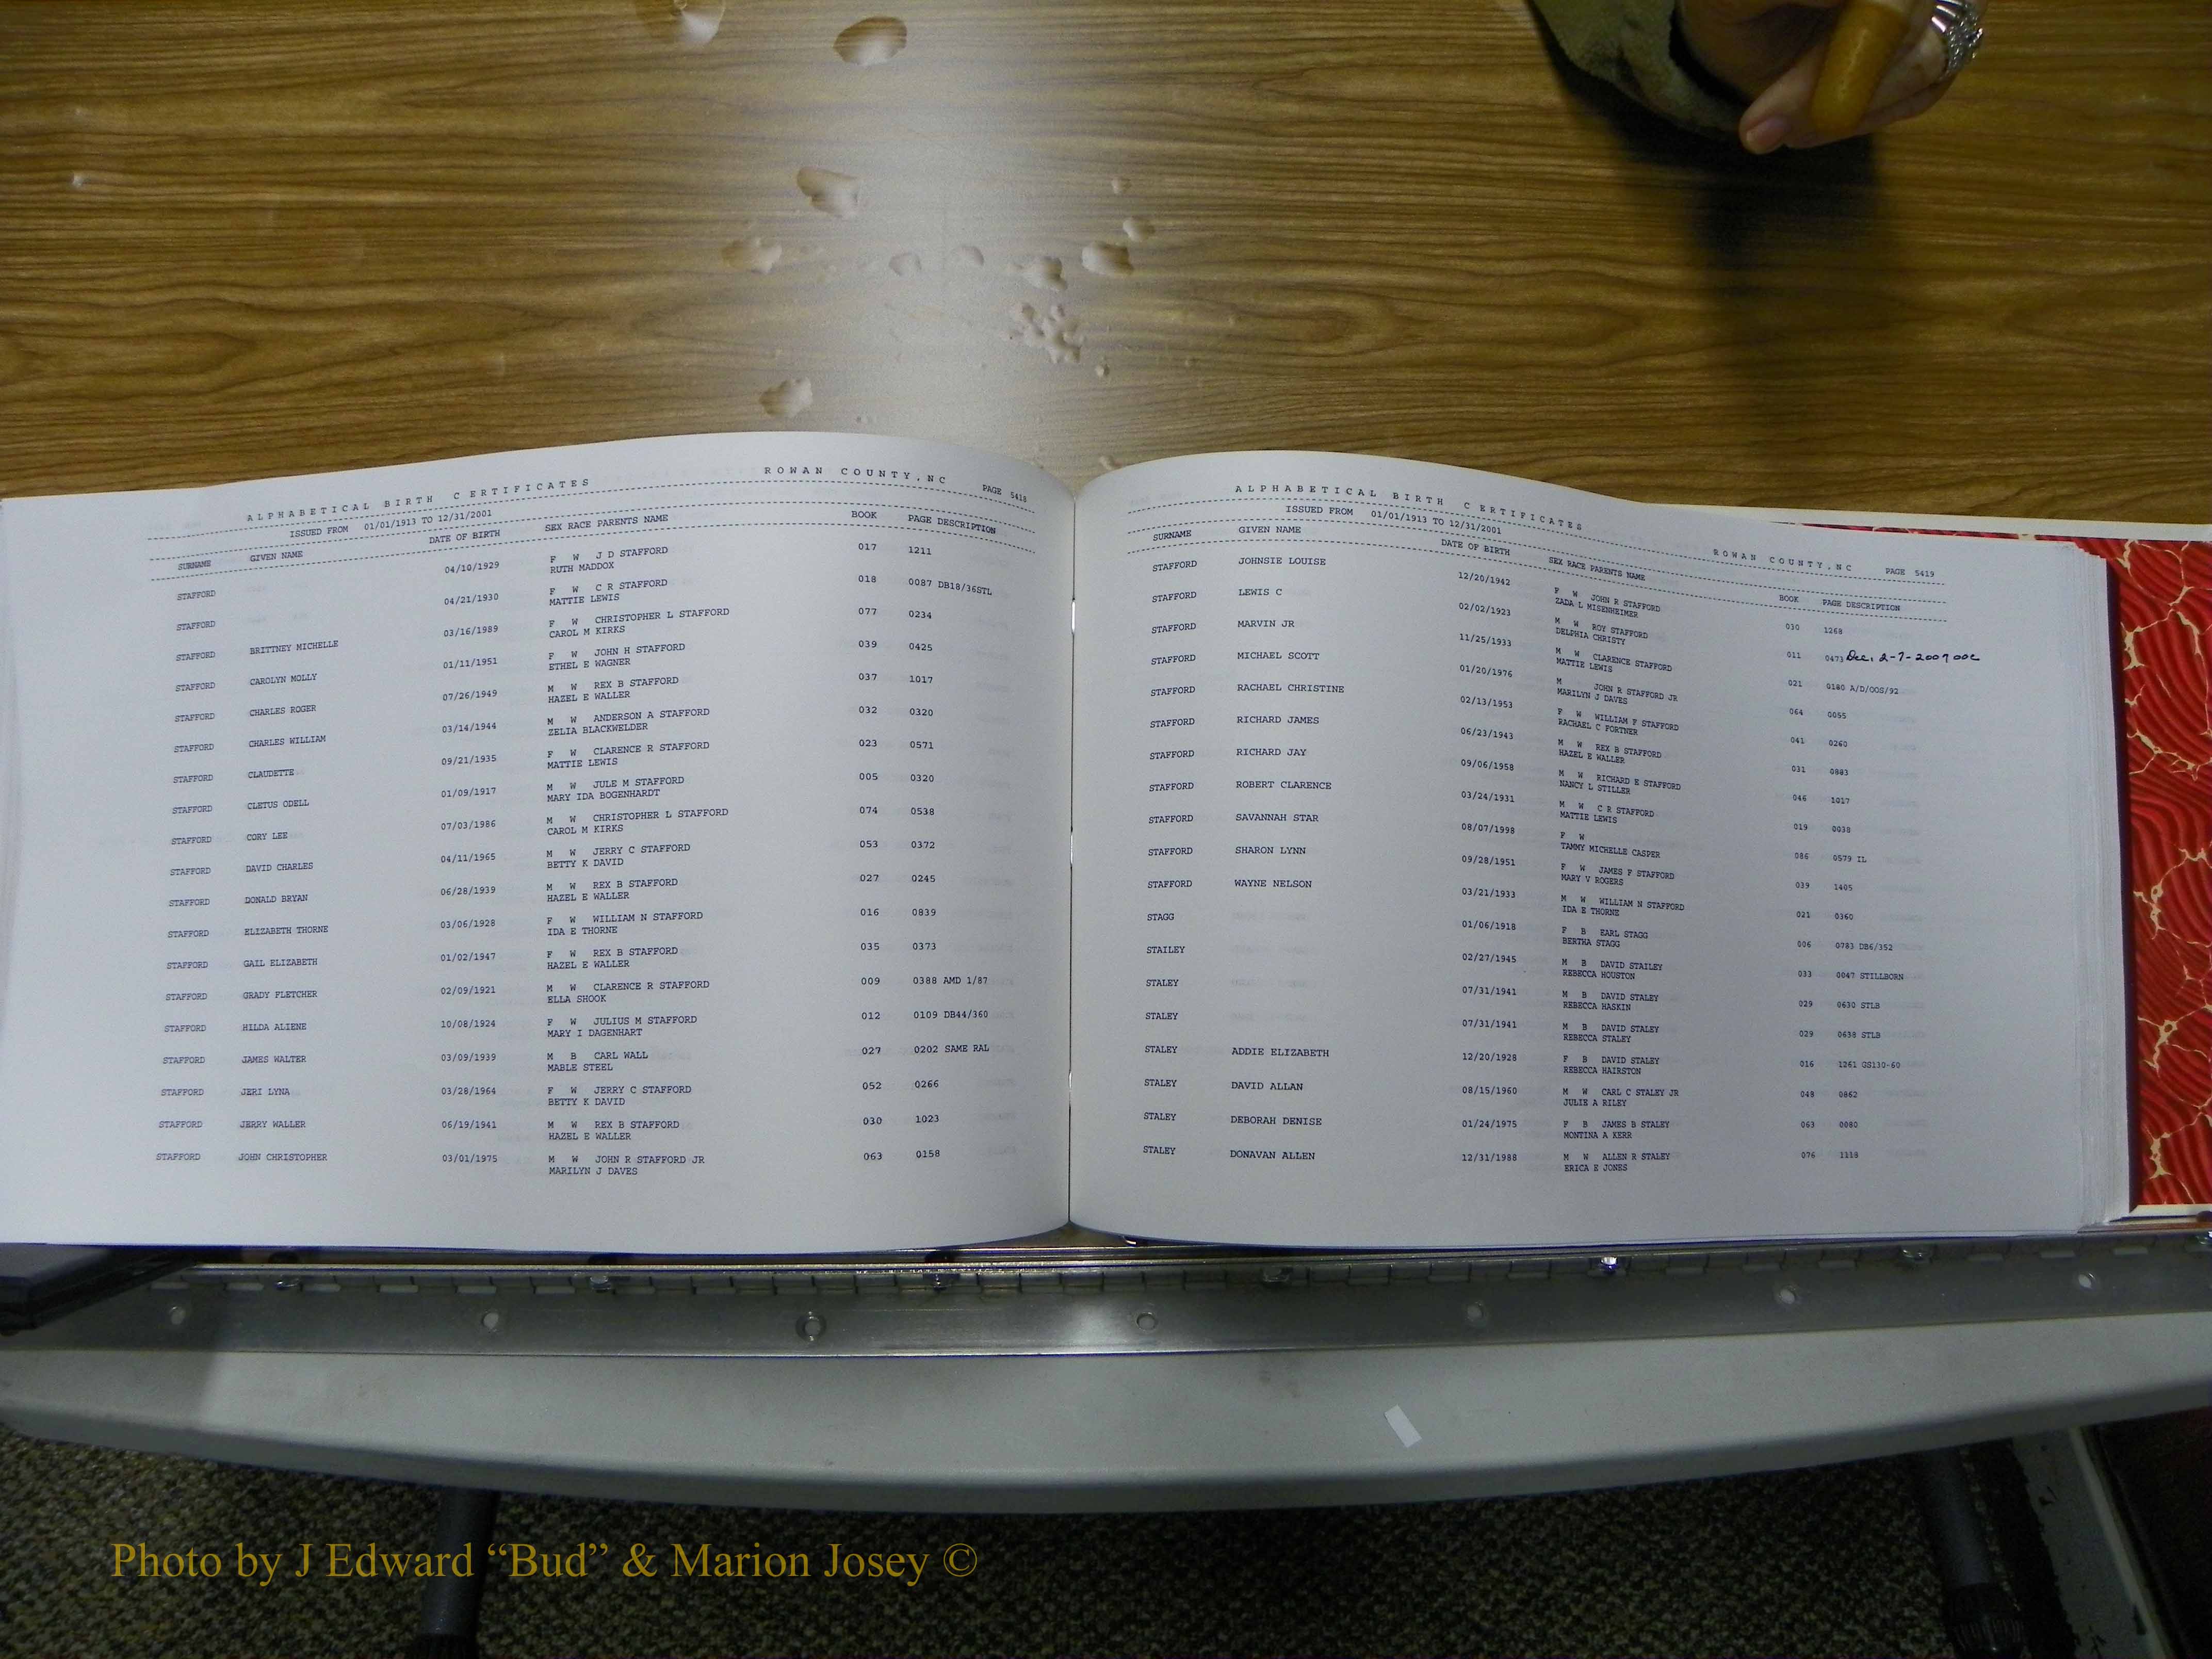 ALPHABETICAL BIRTH CERTIFICATES ROWAN COUNTY, NC PAGE 5418
ISSUED FROM 01/01/1913 TO 12/31/2001
SURNAME GIVEN NAME DATE OF BIRTH SEX RACE PARENTS NAME BOOK PAGE DESCRIPTION
STAFFORD 04/10/1929 F W J D STAFFORD 017 1211
RUTH MADDOX
STAFFORD 04/21/1930 F W C R STAFFORD 018 0087 DB18/36STL
MATTIE LEWIS
STAFFORD BRITTNEY MICHELLE 03/16/1989 F W CHRISTOPHER L STAFFORD 077 0234
CAROL M KIRKS
STAFFORD CAROLYN MOLLY 01/11/1951 F W JOHN H STAFFORD 039 0425
ETHEL E WAGNER
STAFFORD CHARLES ROGER 07/26/1949 M W REX B STAFFORD 037 1017
HAZEL E WALLER
STAFFORD CHARLES WILLIAM 03/14/1944 M W ANDERSON A STAFFORD 032 0320
ZELIA BLACKWELDER
STAFFORD CLAUDETTE 09/21/1935 F W CLARENCE R STAFFORD 023 0571
MATTIE LEWIS
STAFFORD CLETUS ODELL 01/09/1917 M W JULE M STAFFORD 005 0320
MARY IDA BOGENHARDT
STAFFORD CORY LEE 07/03/1986 M W CHRISTOPHER L STAFFORD 074 0538
CAROL M KIRKS
STAFFORD DAVID CHARLES 04/11/1965 M W JERRY C STAFFORD 053 0372
BETTY K DAVID
STAFFORD DONALD BRYAN 06/28/1939 M W REX B STAFFORD 027 0245
HAZEL E WALLER
STAFFORD ELIZABETH THORNE 03/06/1928 F W WILLIAM N STAFFORD 016 0839
IDA E THORNE
STAFFORD GAIL ELIZABETH 01/02/1947 F W REX B STAFFORD 035 0373
HAZEL E WALLER
STAFFORD GRADY FLETCHER 02/09/1921 M W CLARENCE R STAFFORD 009 0388 AMD 1/87
ELLA SHOOK
STAFFORD HILDA ALIENE 10/08/1924 F W JULIUS M STAFFORD 012 0109 DB44/360
MARY I DAGENHART
STAFFORD JAMES WALTER 03/09/1939 M B CARL WALL 027 0202 SAME RAL
MABLE STEEL
STAFFORD JERI LYNA 03/28/1964 F W JERRY C STAFFORD 052 0266
BETTY K DAVID
STAFFORD JERRY WALLER 06/19/1941 M W REX B STAFFORD 030 1023
HAZEL E WALLER
STAFFORD JOHN CHRISTOPHER 03/01/1975 M W JOHN R STAFFORD JR 063 0158
MARILYN J DAVES
ALPHABETICAL BIRTH CERTIFICATES ROWAN COUNTY, NC PAGE 5419
ISSUED FROM 01/01/1913 TO 12/31/2001
SURNAME GIVEN NAME DATE OF BIRTH SEX RACE PARENTS NAME BOOK PAGE DESCRIPTION
STAFFORD JOHNSIE LOUISE 12/20/1942 F W JOHN R STAFFORD 030 1268
ZADA L MISENHEIMER
STAFFORD LEWIS C 02/02/1923 M W ROY STAFFORD 011 0473 Dec. 2-7-2007
DELPHIA CHRISTY
STAFFORD MARVIN JR 11/25/1933 M W CLARENCE STAFFORD 021 0180 A/D/OOS/92
MATTIE LEWIS
STAFFORD MICHAEL SCOTT 01/20/1976 M JOHN R STAFFORD JR 064 0055
MARILYN J DAVES
STAFFORD RACHAEL CHRISTINE 02/13/1953 F W WILLIAM F STAFFORD 041 0260
RACHAEL C FORTNER
STAFFORD RICHARD JAMES 06/23/1943 M W REX B STAFFORD 031 0883
HAZEL E WALLER
STAFFORD RICHARD JAY 09/06/1958 M W RICHARD E STAFFORD 046 1017
NANCY L STILLER
STAFFORD ROBERT CLARENCE 03/24/1931 M W C R STAFFORD 019 0038
MATTIE LEWIS
STAFFORD SAVANNAH STAR 08/07/1998 F W 086 0579 IL
TAMMY MICHELLE CASPER
STAFFORD SHARON LYNN 09/28/1951 F W JAMES F STAFFORD 039 1405
MARY V ROGERS
STAFFORD WAYNE NELSON 03/21/1933 M W WILLIAM N STAFFORD 021 0360
IDA E THORNE
STAGG 01/06/1918 F B EARL STAGG 006 0783 DB6/352
BERTHA STAGG
STAILEY 02/27/1945 M B DAVID STAILEY 033 0047 STILLBORN
REBECCA HOUSTON
STALEY 07/31/1941 M B DAVID STALEY 029 0630 STLB
REBECCA HASKIN
STALEY 07/31/1941 M B DAVID STALEY 029 0638 STLB
REBECCA STALEY
STALEY ADDIE ELIZABETH 12/20/1928 F B DAVID STALEY 016 1261 GS130-60
REBECCA HAIRSTON
STALEY DAVID ALLAN 08/15/1960 M W CARL C STALEY JR 048 0862
JULIE A RILEY
STALEY DEBORAH DENISE 01/24/1975 F B JAMES B STALEY 063 0080
MONTINA A KERR
STALEY DONAVAN ALLEN 12/31/1988 M W ALLEN R STALEY 076 1118
ERICA E JONES
Photo by J Edward “Bud” & Marion Josey ©